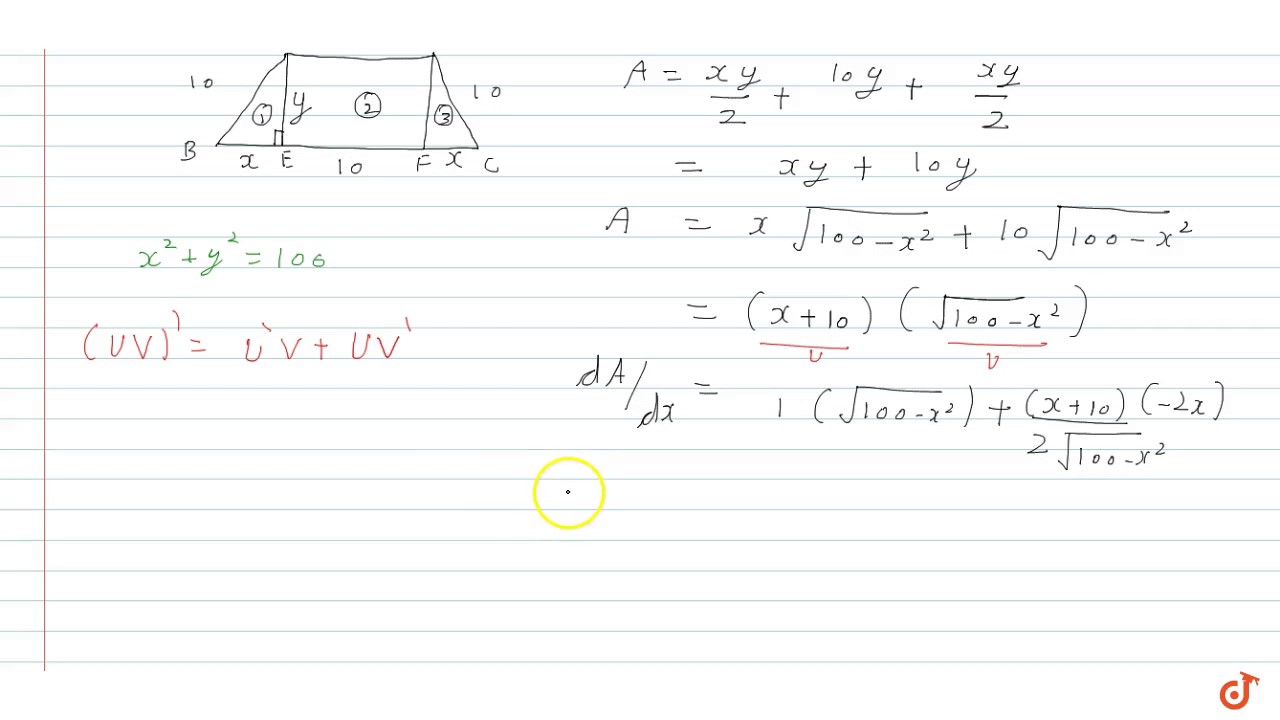 10 ① y ② ③ 10
B x E 10 F x C
x² + y² = 100
(UV)' = U'V + UV'
A = xy/2 + 10y + xy/2
= xy + 10y
A = x √(100-x²) + 10 √(100-x²)
= (x+10) (√(100-x²))
U V
dA/dx = 1 (√(100-x²)) + (x+10)(-2x) / 2√(100-x²)